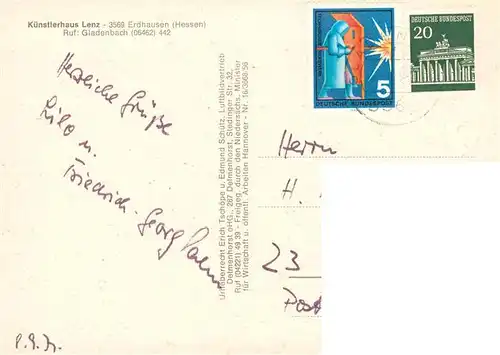 Künstlerhaus Lenz - 3569 Erdhausen (Hessen)
Ruf: Gladenbach (06462) 442
Herzliche Grüße
Lilo u.
Friedrich-Georg
Urheberrecht Erich Tschöpe u. Edmund Schütz, Luftbildvertrieb
Delmenhorst oHG., 287 Delmenhorst, Stedinger Str. 33,
Ruf (04221) 49 39 - Freigeg. durch den Niedersächs. Minister
für Wirtschaft u. öffentl. Arbeiten Hannover - Nr.
5
DEUTSCHE BUNDESPOST
DEUTSCHE BUNDESPOST
20
Herrn
H.
23
Post